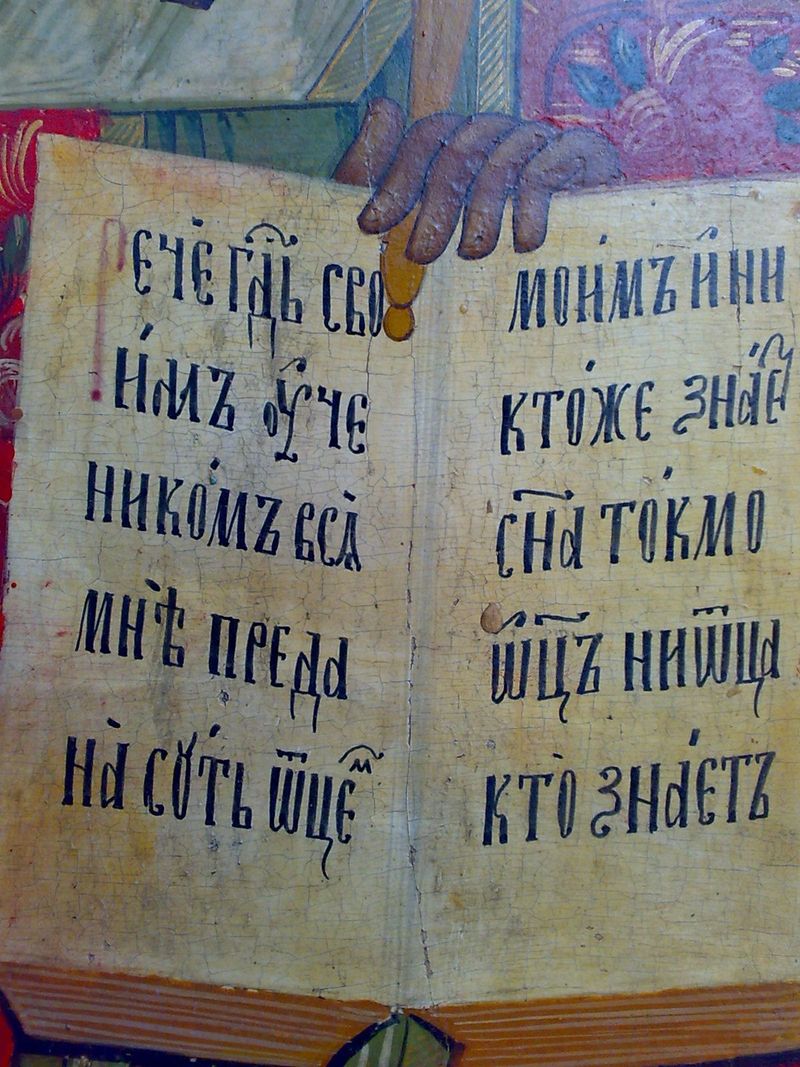 Речѐ гд҃ь сво
и́мъ оу҆че
нико́мъ всѧ̀
мнѣ̀ преда
на̀ сꙋ́ть ѿцеⷨ
мои́мъ и҆ ни
кто́же зна́еⷮ
сн҃а то́кмо
ѿц҃ъ ни ѿца
кто̀ зна́етъ